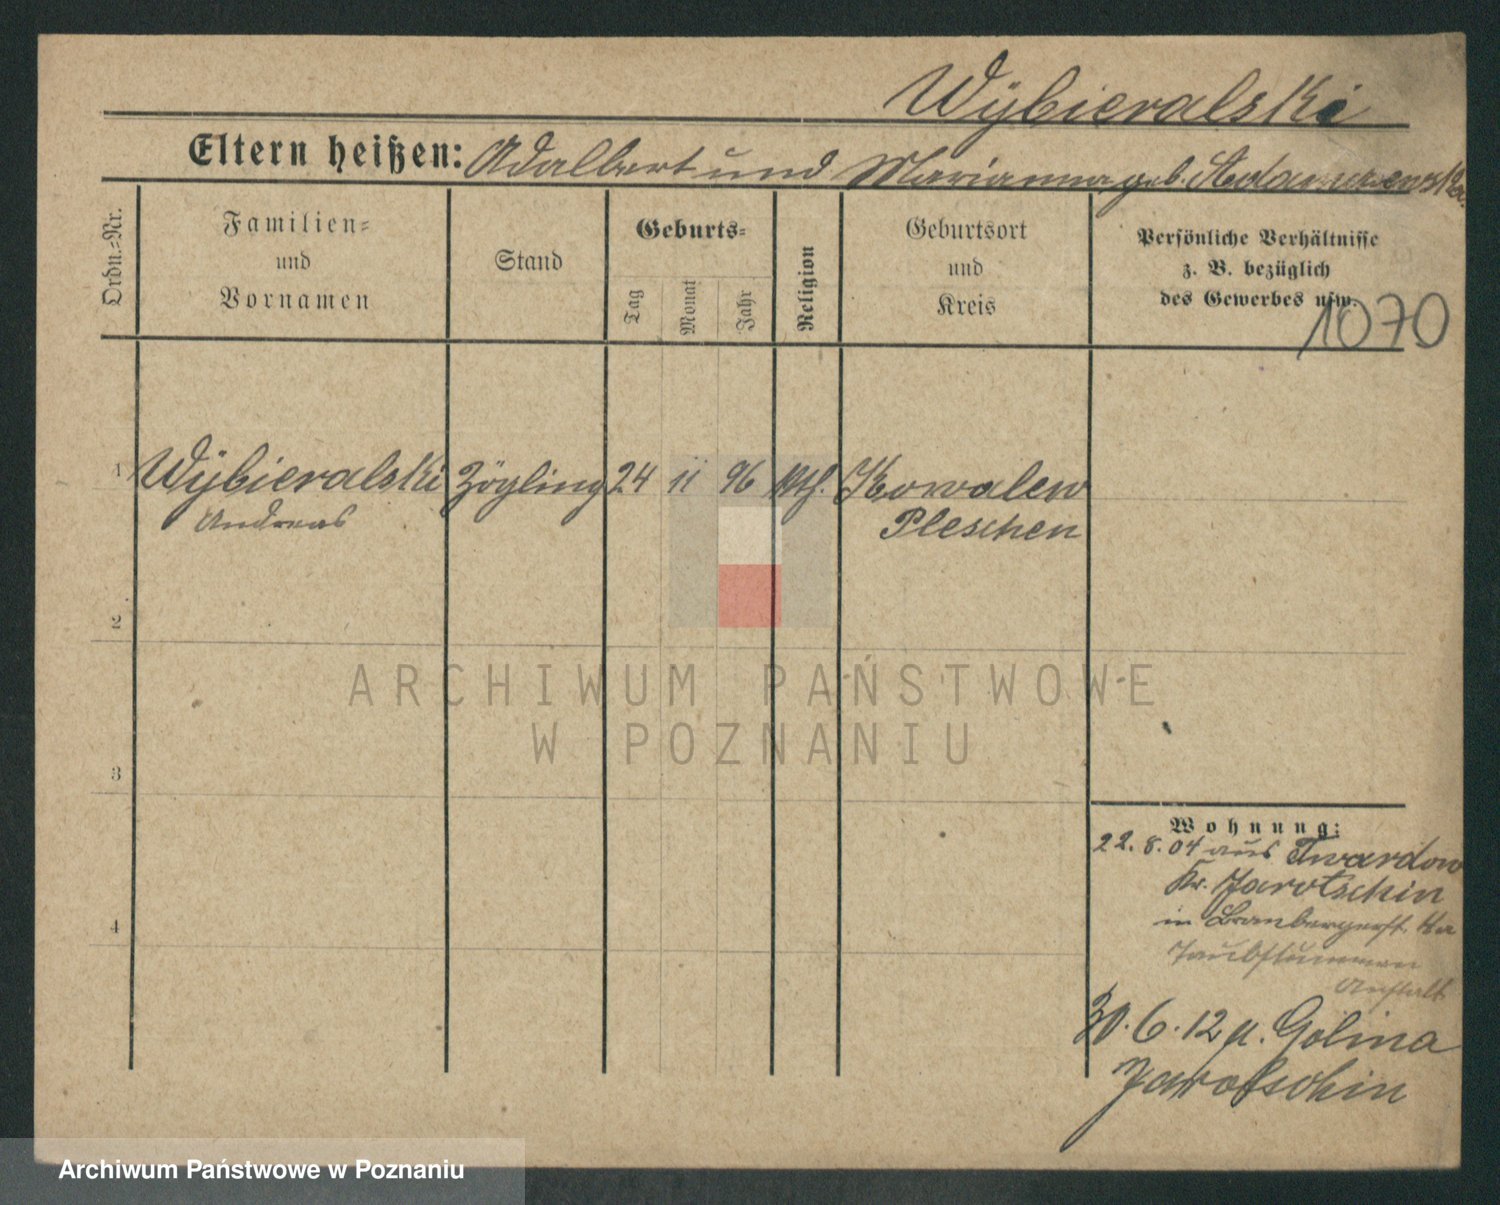 Wÿbieralski
Eltern heißen: Adalbert und Marianna geb. Adamczewska.
Ordn.=Nr.
Familien=
und
Vornamen
Stand
Geburts=
Tag
Monat
Jahr
Religion
Geburtsort
und
Kreis
Persönliche Verhältnisse
z. B. bezüglich
des Gewerbes usw.
1070
1 Wÿbieralski Zögling 24 11 96 kth. Kowalew
Andreas Pleschen
2
3
4
ARCHIWUM PAŃSTWOWE
W POZNANIU
Wohnung:
22. 8. 04 aus Twardow
Kr. Jarotschin
in
Taubstummen
Anstalt
30. 6. 12 n. Golina
Jarotschin
Archiwum Państwowe w Poznaniu